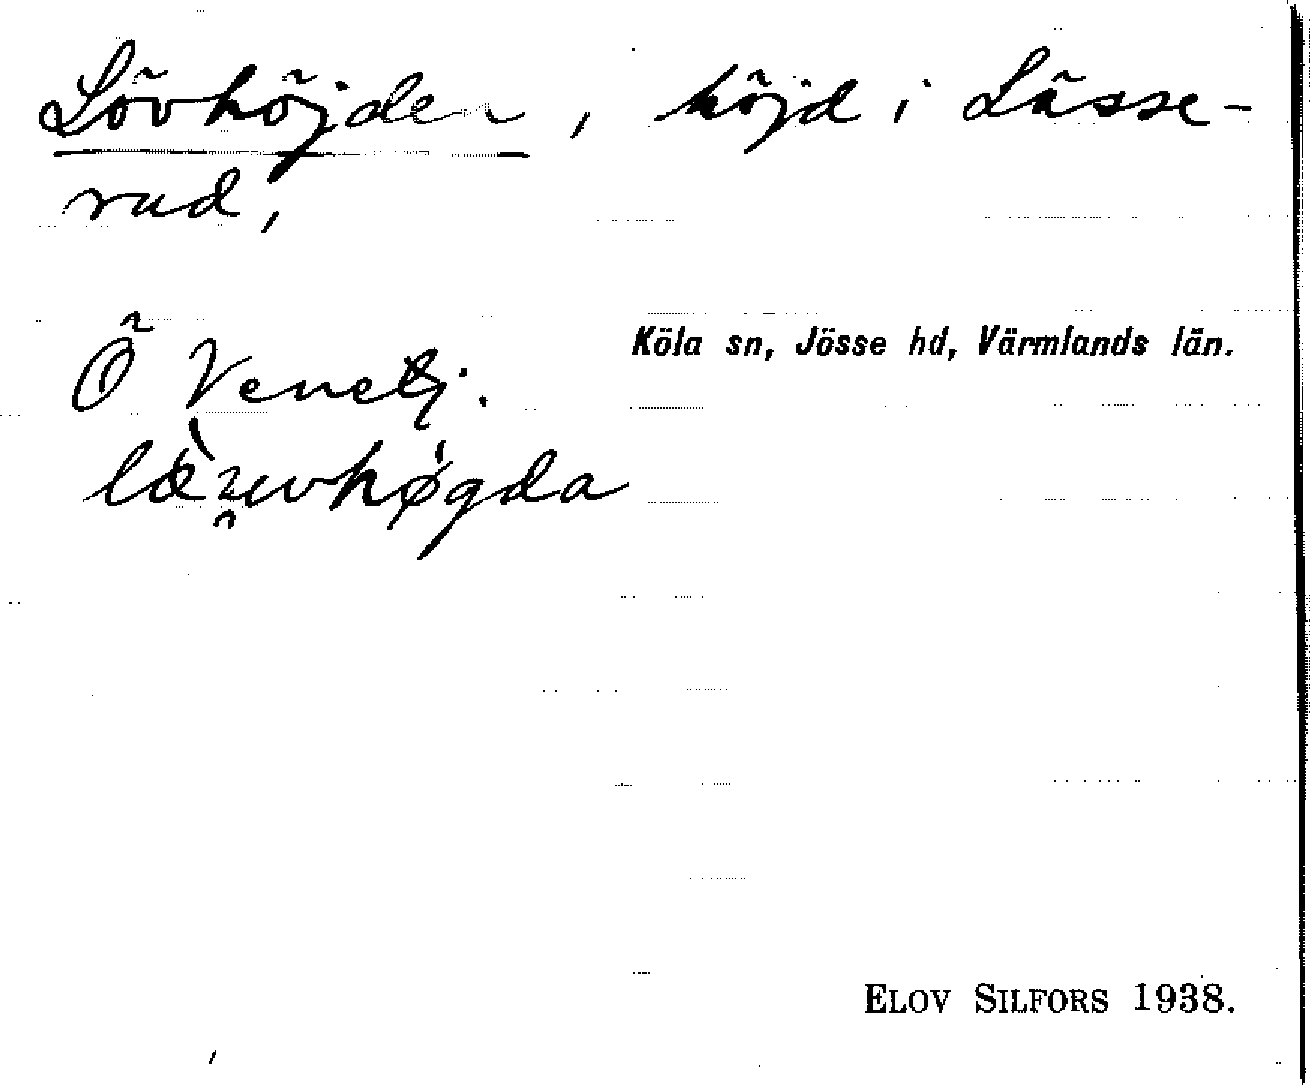 Lövhöjden, höjd i Lässe-
rud,
Köla sn, Jösse hd, Värmlands län.
Ö Venetj.
ELOV SILFORS 1938.